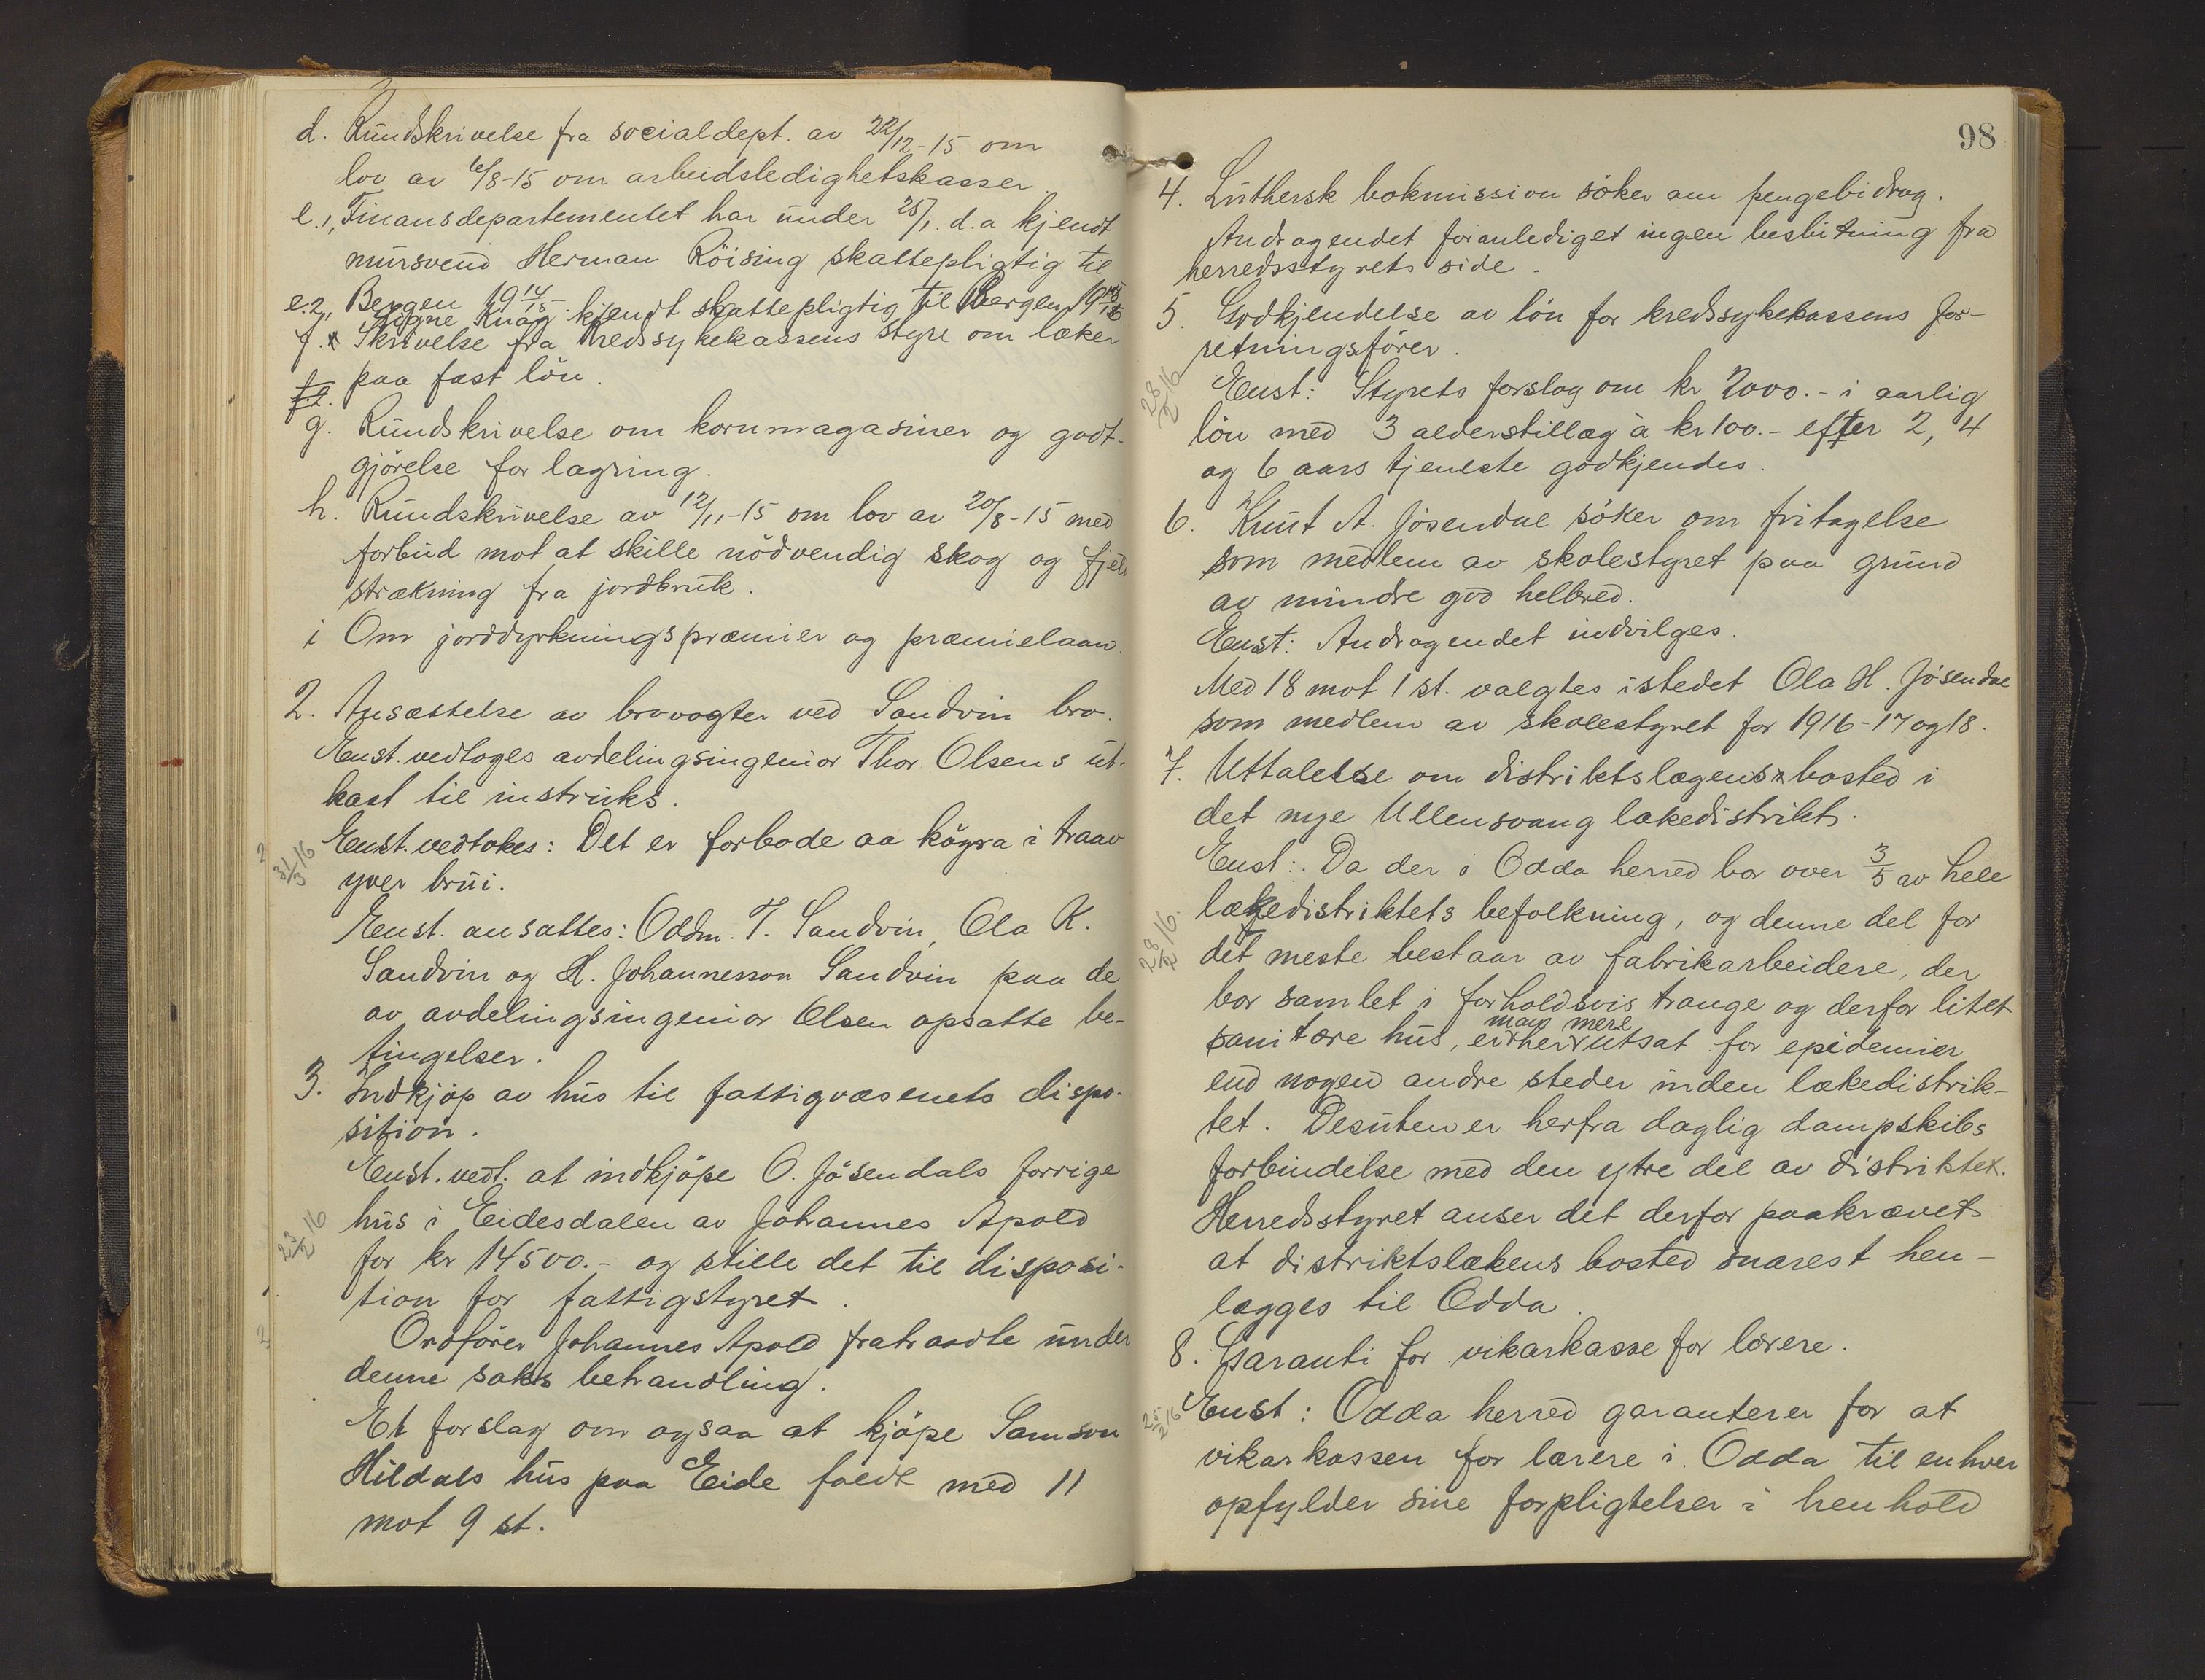 d. Rundskrivelse fra socialdept. av 22/12-15 om
lov av 6/8-15 om arbeidsledighetskasser.
e.1, Finansdepartementet har under 25/1 d.a kjendt
mursvend Herman Röising skattepligtig til
Bergen 1914/15
e.2, Signe Knag kjendt skattepligtig til Bergen
f. Skrivelse fra Kredssykekassens styre om læker
paa fast lön.
g. Rundskrivelse om kornmagasiner og godt-
gjörelse for lagring.
h. Rundskrivelse av 12/11-15 om lov av 20/8-15 med
forbud mot at skille nödvendig skog og fjeld
strækning fra jordbruk.
i Om jorddyrkningspræmier og præmielaan.
2. Ansættelse av brovogter ved Sandvin bro.
Enst. vedtoges avdelingsingeniør Thor Olsens ut-
kast til instruks.
31/3 16
Enst. vedtokes: Det er forbode aa köyra i traav
yver brui.
Enst. ansattes: Oddm. T. Sandvin, Ola K.
Sandvin og H. Johannesson Sandvin paa de
av avdelingsingeniør Olsen opsatte be-
tingelser.
3. Indkjöp av hus til fattigvæsenets dispo-
sition.
Enst. vedt. at indkjöpe O. Jösendals forrige
23/2 16
hus i Eidesdalen av Johannes Apold
for kr 14500.- og stille det til disposi-
tion for fattigstyret.
Ordförer Johannes Apold fratraadte under
denne saks behandling.
Et forslag om ogsaa at kjöpe Samson
Hildals hus paa Eide faldt med 11
mot 9 st.
98
4. Luthersk bokmission söker om pengebidrag.
Andragendet foranlediget ingen beslutning fra
herredsstyrets side.
5. Godkjendelse av lön for kredssykekassens for-
retningsförer.
28/2 16
Enst: Styrets forslag om kr 2000.- i aarlig
lön med 3 alderstillæg à kr 100.- efter 2, 4
og 6 aars tjeneste godkjendes.
6. Knut A. Jösendal söker om fritagelse
som medlem av skolestyret paa grund
av mindre god helbred.
Enst: Andragendet indvilges.
Med 18 mot 1 st. valgtes istedet Ola H. Jösendal
som medlem av skolestyret for 1916-17 og 18.
7. Uttalelse om distriktslægens bosted i
det nye Ullensvang lækedistrikt.
Enst: Da der i Odda herred bor over 3/5 av hele
lækedistriktets befolkning, og denne del for
28/2 16.
det meste bestaar av fabrikarbeidere, der
bor samlet i forholdsvis trange og derfor litet
sanitære hus, er man her mere utsat for epidemier
end nogen andre steder inden lækedistrik-
tet. Desuten er herfra daglig dampskibs
forbindelse med den ytre del av distriktet.
Herredsstyret anser det derfor paakrævet
at distriktslækens bosted snarest hen-
lægges til Odda.
8. Garanti for vikarkasse for lærere.
25/2 16
Enst: Odda herred garanterer for at
vikarkassen for lærere i Odda til enhver
opfylder sine forpligtelser i henhold